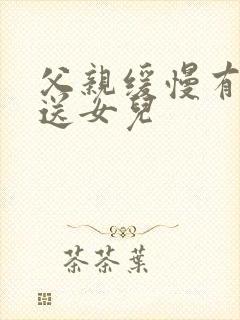 父親缓慢有
送女兒
茶茶葉